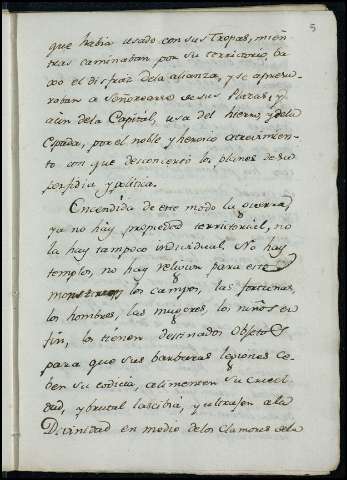 5
que habia usado con sus Tropas, mien-
tras caminaban por su territorio, ba-
xo el disfraz dela alianza, y se apresu-
raban a Señorearse de sus Plazas, y
aun dela Capital, usa del hierro, y dela
Espada, por el noble y heroico atrevimien-
to con que desconcertó los planes de su
perfidia y politica.
Encendida de este modo la guerra,
ya no hay propiedad territorial, no
la hay tampoco individual. No hay
templos, no hay religion para este
monstruo; los campos, las fortunas,
los hombres, las mugeres, los niños en
fin, los tienen destinados Objetos
para que sus barbaras legiones ce-
ben su codicia, alimenten su cruel-
dad, y brutal lascibia, y ultrajen ala
Divinidad en medio delos Clamores dela